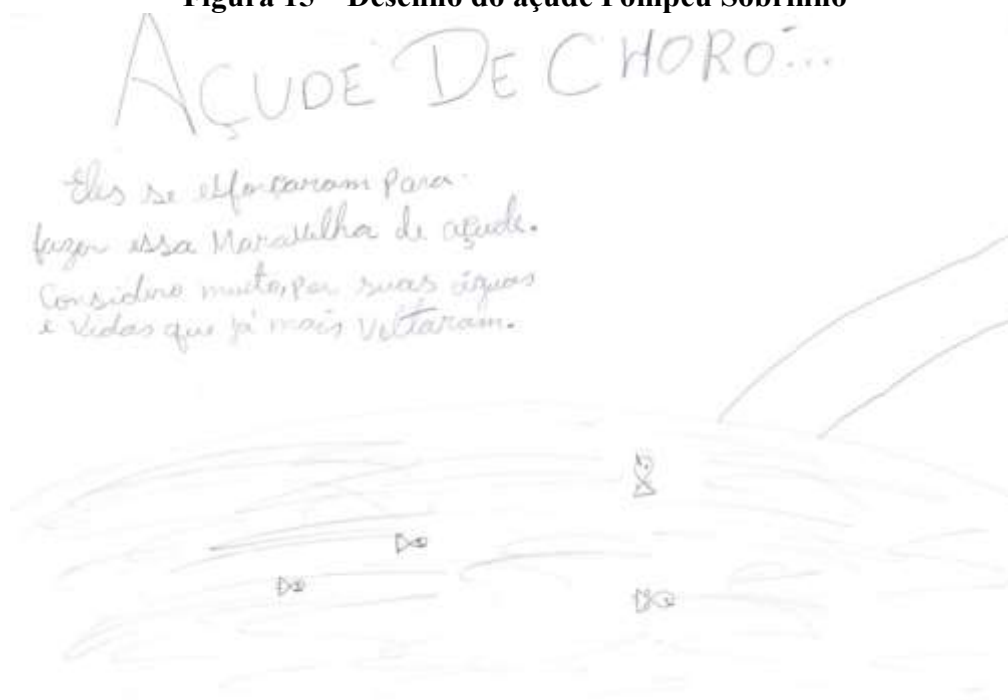 Figura 15 – Desenho do açude Pompeu Sobrinho
AÇUDE DE CHORO...
Eles se esforçaram para
fazer essa Maravilha de açude.
Considero muito, por suas águas
e Vidas que já mais Voltaram.